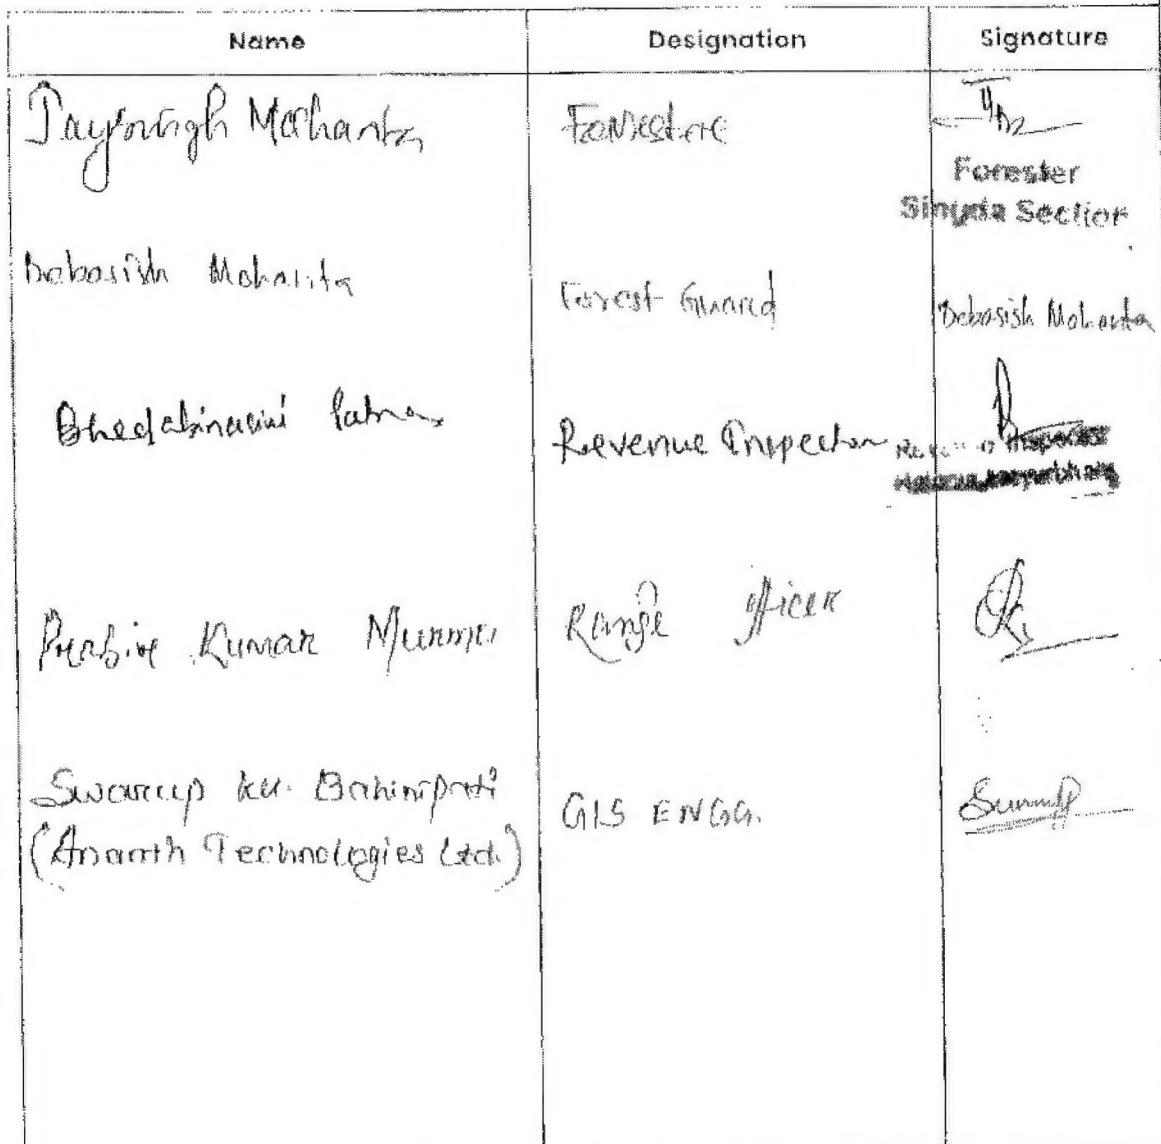 Name Designation Signature
Jaysingh Mohanta Forester
Forester
Singda Section
Debasish Mohanta Forest Guard Debasish Mohanta
Bhedabinasini Patra Revenue Inspector
Inspector
Kumar Murmu Range officer
Swarup ku. Bahinipati GIS ENGG. Swarup
(Ananth Technologies Ltd.)